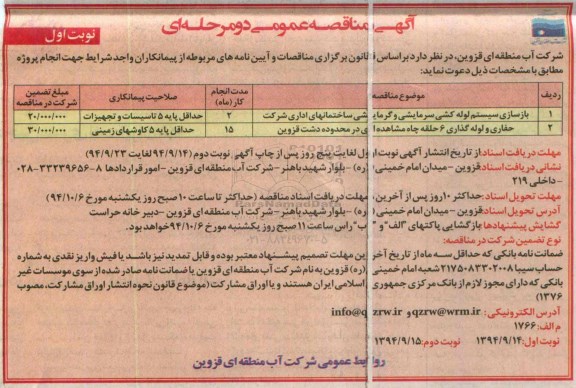 آگهی مناقصه عمومی دو مرحله ای
نوبت اول
شرکت آب منطقه ای قزوین، در نظر دارد براساس قانون برگزاری مناقصات و آیین نامه های مربوطه از پیمانکاران واجد شرایط جهت انجام پروژه
مطابق با مشخصات ذیل دعوت نماید:
ردیف موضوع مناقصه مدت انجام کار (ماه) صلاحیت پیمانکاری مبلغ تضمین شرکت در مناقصه
۱ بازسازی سیستم لوله کشی سرمایشی و گرمایشی ساختمانهای اداری شرکت ۲ حداقل پایه ۵ تاسیسات و تجهیزات ۲۰/۰۰۰/۰۰۰
۲ حفاری و لوله گذاری ۶ حلقه چاه مشاهده ای در محدوده دشت قزوین ۱۵ حداقل پایه ۵ کاوشهای زمینی ۳۰/۰۰۰/۰۰۰
مهلت دریافت اسناد: از تاریخ انتشار آگهی نوبت اول لغایت پنج روز پس از چاپ آگهی نوبت دوم (۹۴/۹/۱۴ لغایت ۹۴/۹/۲۳)
نشانی دریافت اسناد: قزوین - میدان امام خمینی (ره) - بلوار شهید باهنر - شرکت آب منطقه ای قزوین - امور قراردادها ۸-۳۳۲۳۹۶۵۶-۰۲۸
- داخلی ۲۱۹
مهلت تحویل اسناد: حداکثر ۱۰ روز پس از آخرین مهلت دریافت اسناد مناقصه (حداکثر تا ساعت ۱۰ صبح روز یکشنبه مورخ ۹۴/۱۰/۶)
آدرس تحویل اسناد: قزوین - میدان امام خمینی (ره) - بلوار شهید باهنر - شرکت آب منطقه ای قزوین - دبیر خانه حراست
گشایش پیشنهادها: بازگشایی پاکتهای "الف" و "ب" راس ساعت ۱۱ صبح روز یکشنبه مورخ ۹۴/۱۰/۶ خواهد بود.
نوع تضمین شرکت در مناقصه:
ضمانت نامه بانکی که حداقل سه ماه از تاریخ آخرین مهلت تصمیم پیشنهاد معتبر بوده و قابل تمدید نیز باشد یا فیش واریز نقدی به شماره
حساب سیبا ۲۱۷۵۰۸۳۳۰۲۰۰۸ شعبه امام خمینی (ره) قزوین به نام شرکت آب منطقه ای قزوین یا ضمانت نامه صادره از سوی موسسات غیر
بانکی که دارای مجوز لازم از بانک مرکزی جمهوری اسلامی ایران هستند و یا اوراق مشارکت (موضوع قانون نحوه انتشار اوراق مشارکت، مصوب
۱۳۷۶)
آدرس الکترونیکی: qzrw@wrm.ir و info@qzrw.ir
م الف: ۱۷۶۶
نوبت اول: ۱۳۹۴/۹/۱۴ نوبت دوم: ۱۳۹۴/۹/۱۵
روابط عمومی شرکت آب منطقه ای قزوین